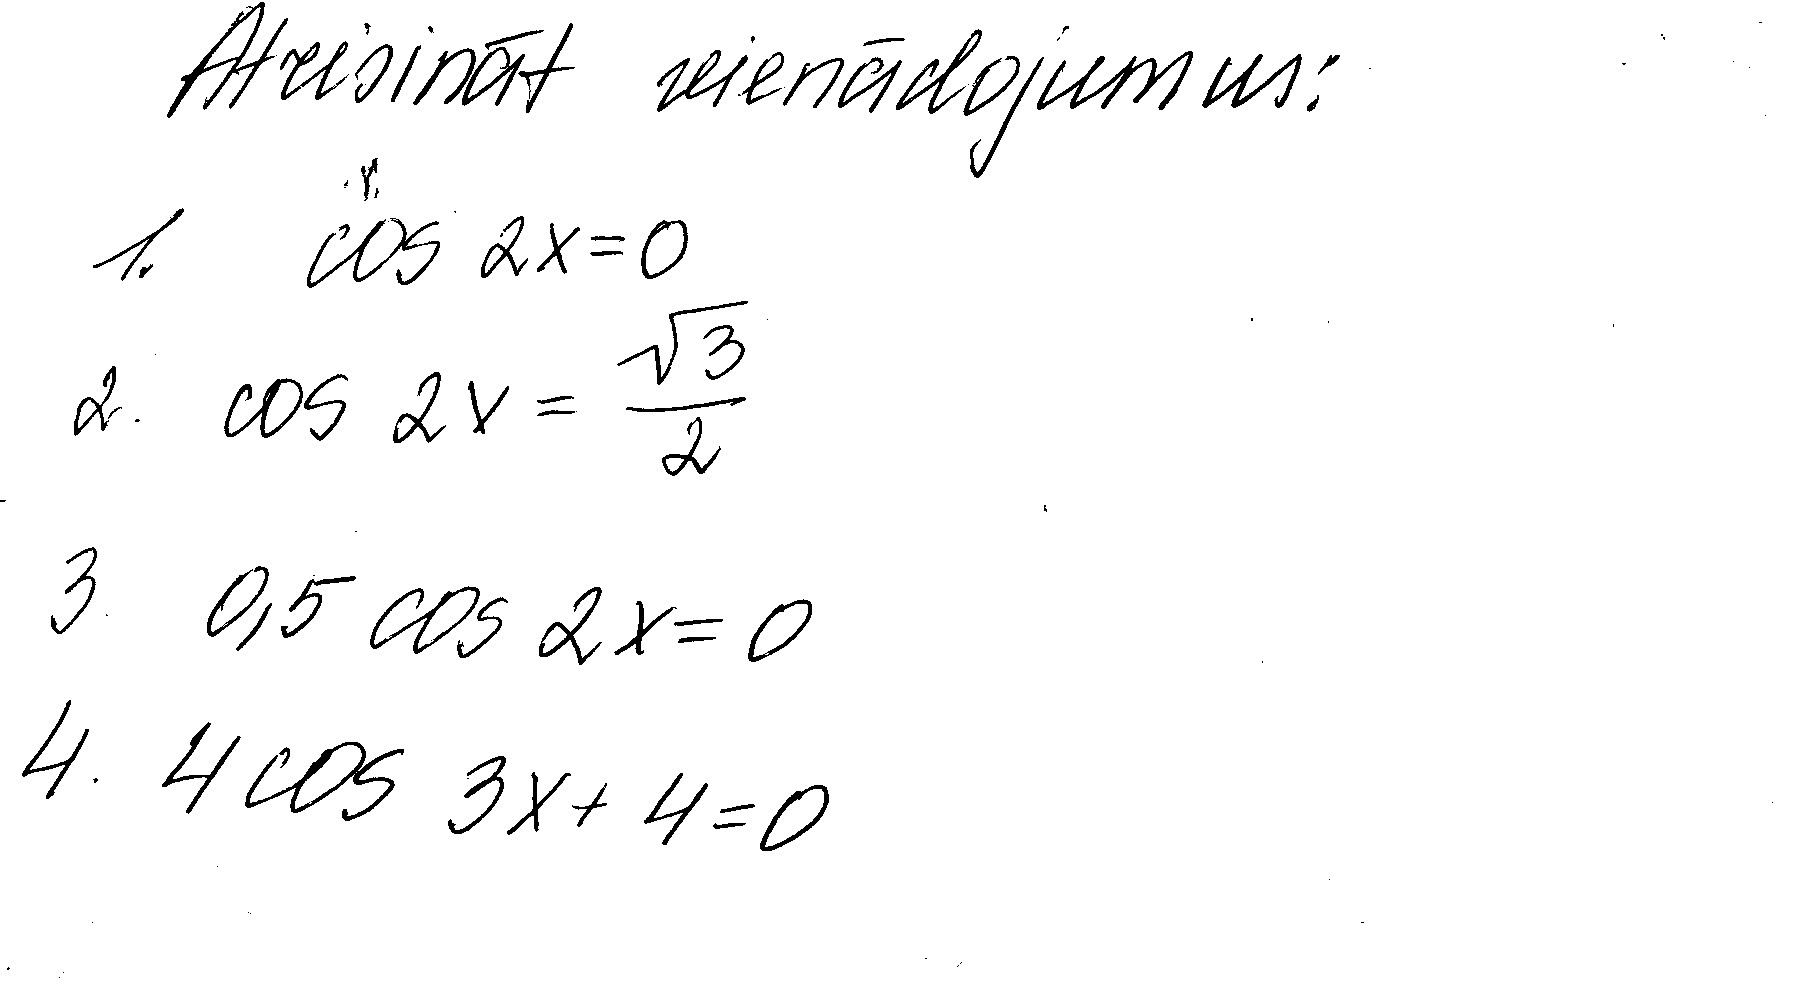 Atrisināt vienādojumus:
1. cos 2x=0
2. cos 2x = √3/2
3. 0,5 cos 2x=0
4. 4 cos 3x+4=0